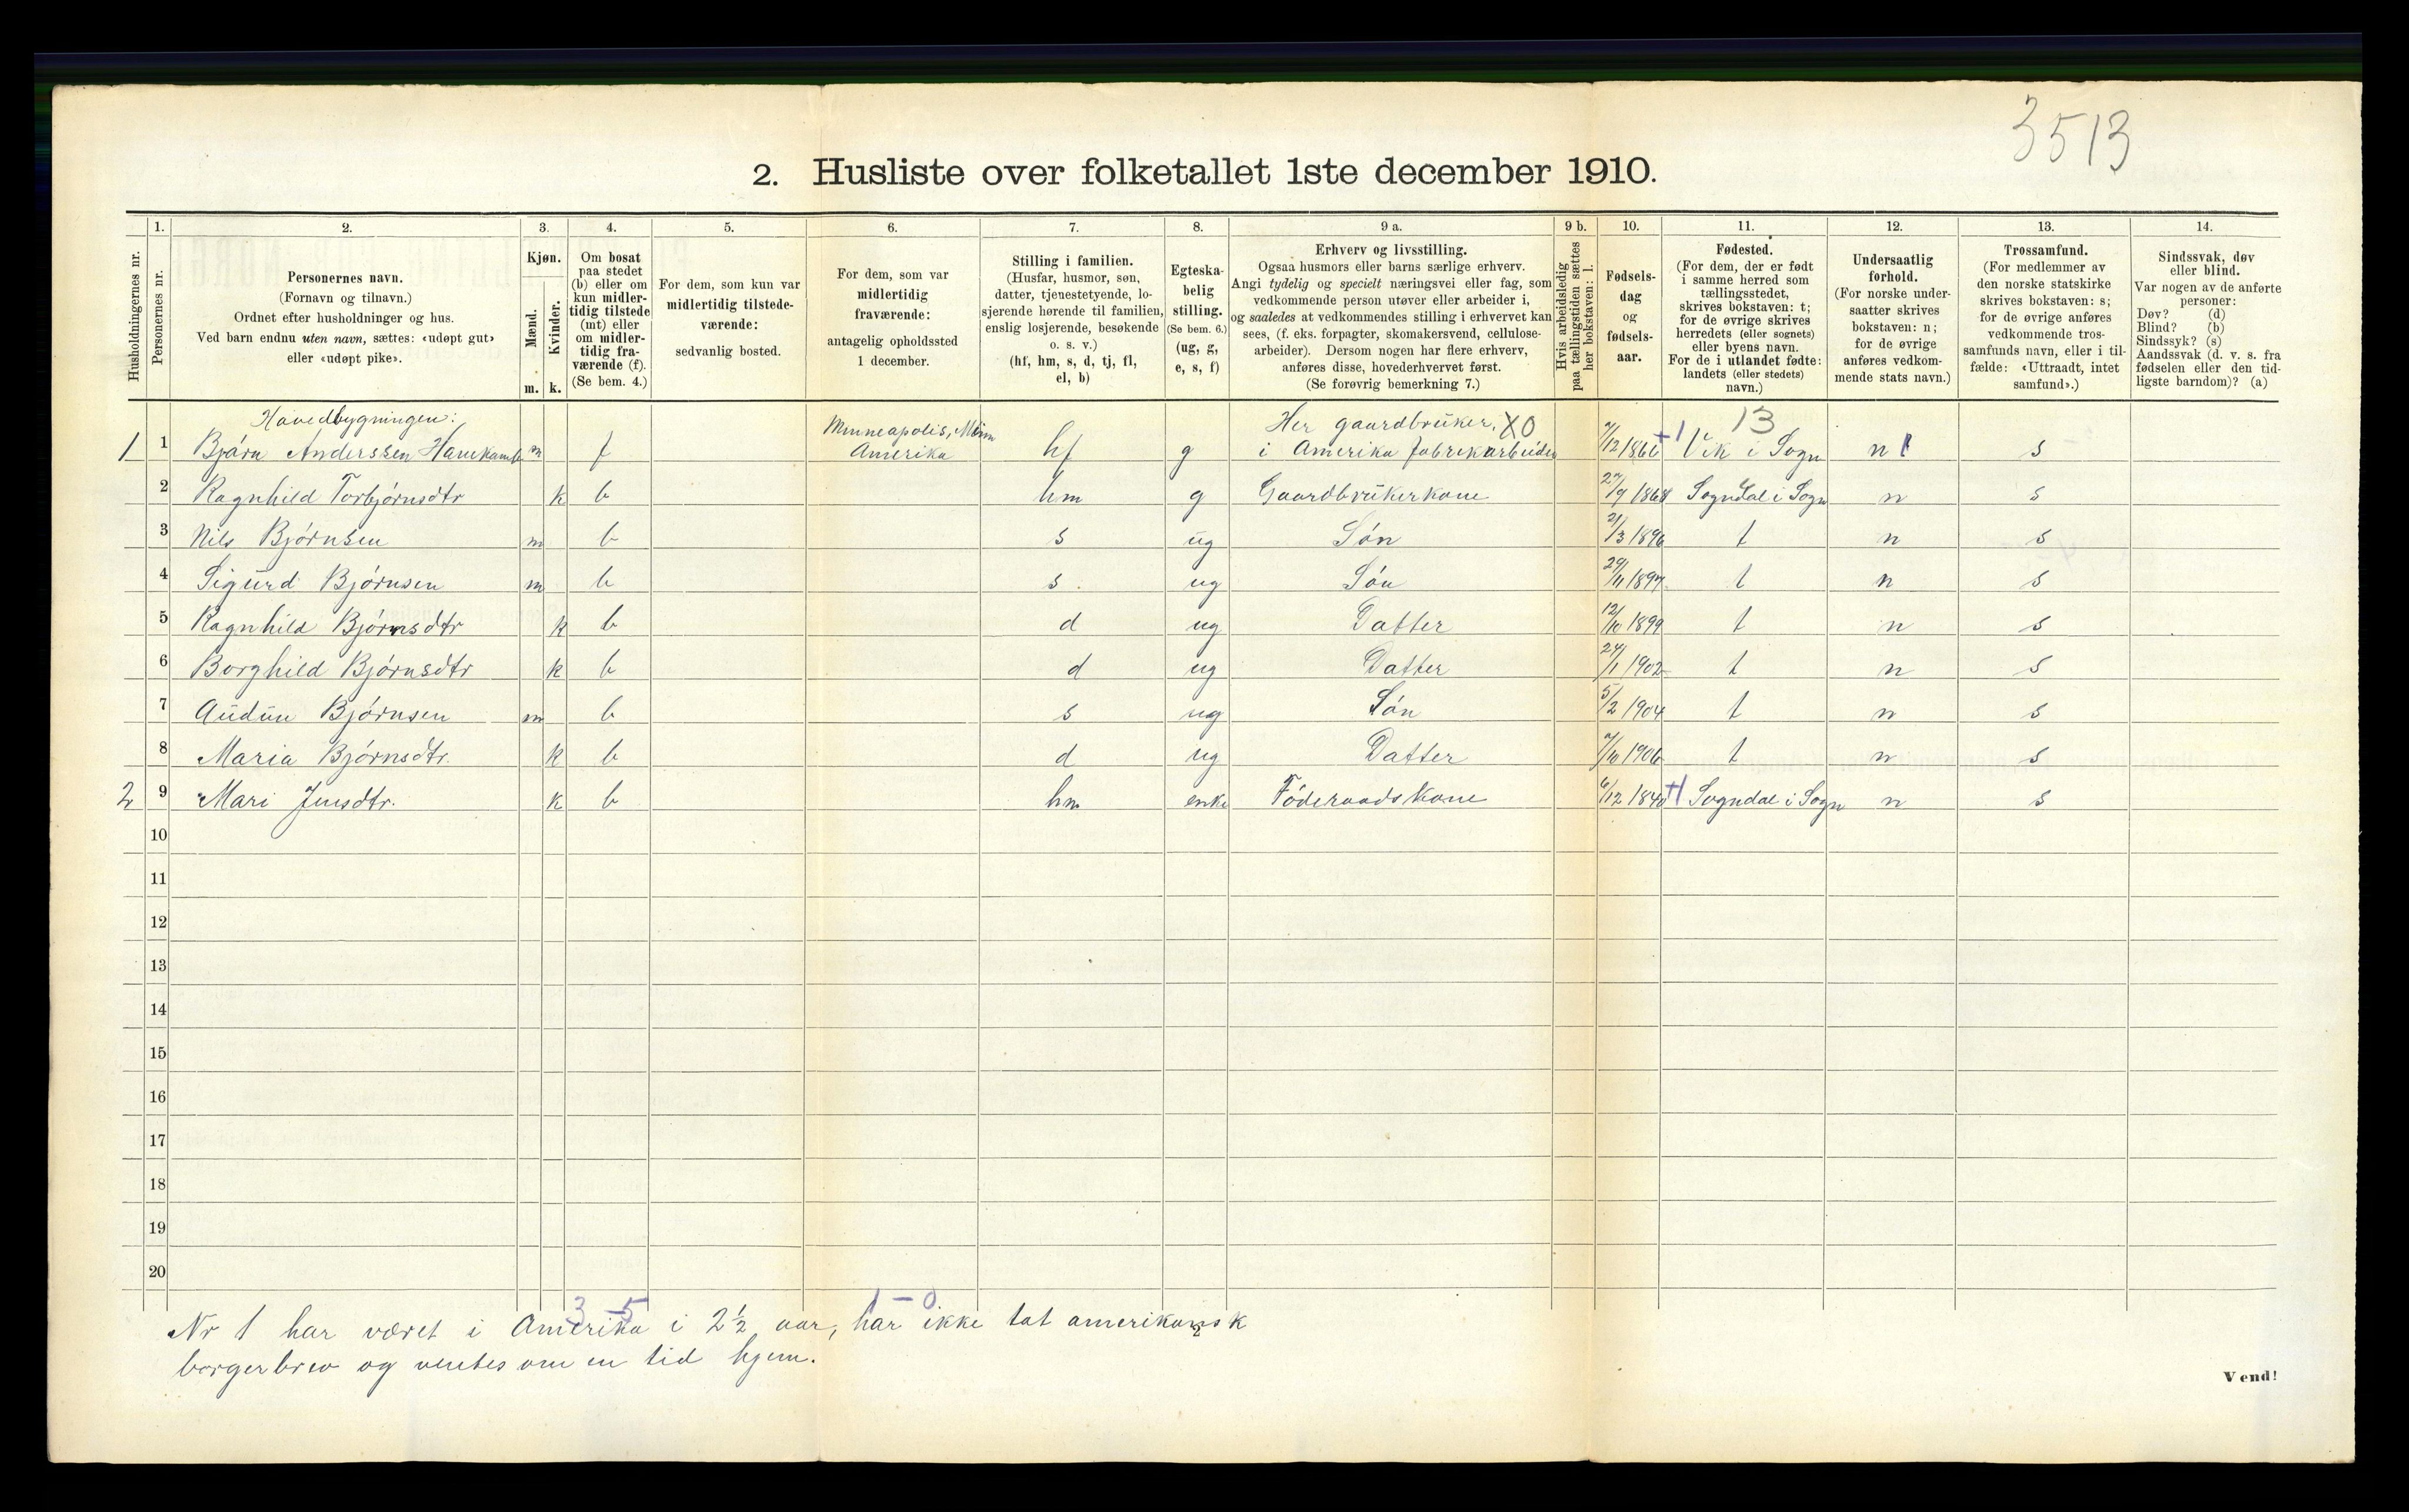 3513
2. Husliste over folketallet 1ste december 1910.
Husholdningernes nr.
1.
Personernes nr.
2.
Personernes navn.
(Fornavn og tilnavn.)
Ordnet efter husholdninger og hus.
Ved barn endnu uten navn, sættes: «udøpt gut»
eller «udøpt pike».
3.
Kjøn.
Mænd.
Kvinder.
m. k.
4.
Om bosat
paa stedet
(b) eller om
kun midler-
tidig tilstede
(mt) eller
om midler-
tidig fra-
værende (f).
(Se bem. 4.)
5.
For dem, som kun var
midlertidig tilstede-
værende:
sedvanlig bosted.
6.
For dem, som var
midlertidig
fraværende:
antagelig opholdssted
1 december.
7.
Stilling i familien.
(Husfar, husmor, søn,
datter, tjenestetyende, lo-
sjerende hørende til familien,
enslig losjerende, besøkende
o. s. v.)
(hf, hm, s, d, tj, fl,
el, b)
8.
Egteska-
belig
stilling.
(Se bem. 6.)
(ug, g,
e, s, f)
9 a.
Erhverv og livsstilling.
Ogsaa husmors eller barns særlige erhverv.
Angi tydelig og specielt næringsvei eller fag, som
vedkommende person utøver eller arbeider i,
og saaledes at vedkommendes stilling i erhvervet kan
sees, (f. eks. forpagter, skomakersvend, cellulose-
arbeider). Dersom nogen har flere erhverv,
anføres disse, hovederhvervet først.
(Se forøvrig bemerkning 7.)
9 b.
Hvis arbeidsledig
paa tællingstiden sættes
her bokstaven: l.
10.
Fødsels-
dag
og
fødsels-
aar.
11.
Fødested.
(For dem, der er født
i samme herred som
tællingsstedet,
skrives bokstaven: t;
for de øvrige skrives
herredets (eller sognets)
eller byens navn.
For de i utlandet fødte:
landets (eller stedets)
navn.)
12.
Undersaatlig
forhold.
(For norske under-
saatter skrives
bokstaven: n;
for de øvrige
anføres vedkom-
mende stats navn.)
13.
Trossamfund.
(For medlemmer av
den norske statskirke
skrives bokstaven: s;
for de øvrige anføres
vedkommende tros-
samfunds navn, eller i til-
fælde: «Uttraadt, intet
samfund».)
14.
Sindssvak, døv
eller blind.
Var nogen av de anførte
personer:
Døv? (d)
Blind? (b)
Sindssyk? (s)
Aandssvak (d. v. s. fra
fødselen eller den tid-
ligste barndom)? (a)
Hovedbygningen: Minneapolis, Minn Her gaardbruker, X0 13
1 1 Bjørn Anderssen Hanekamb m f Amerika hf g i Amerika fabrikarbeider 7/12 1866 +1 Vik i Sogn n 1 s
2 Ragnhild Torbjørnsdtr k b hm g Gaardbrukerkone 27/9 1868 Sogndal i Sogn n s
3 Nils Bjørnsen m b s ug Søn 21/3 1896 t n s
4 Sigurd Bjørnsen m b s ug Søn 29/11 1897 t n s
5 Ragnhild Bjørnsdtr k b d ug Datter 12/10 1899 t n s
6 Borghild Bjørnsdtr k b d ug Datter 24/1 1902 t n s
7 Audun Bjørnsen m b s ug Søn 5/2 1904 t n s
8 Maria Bjørnsdtr. k b d ug Datter 7/10 1906 t n s
2 9 Mari Jensdtr. k b hm enke Føderaadskone 6/12 1840 +1 Sogndal i Sogn n s
10
11
12
13
14
15
16
17
18
19
20
3-5 1-0
Nr 1 har været i Amerika i 2 1/2 aar, har ikke tat amerikansk
borgerbrev og ventes om en tid hjem.
Vend!